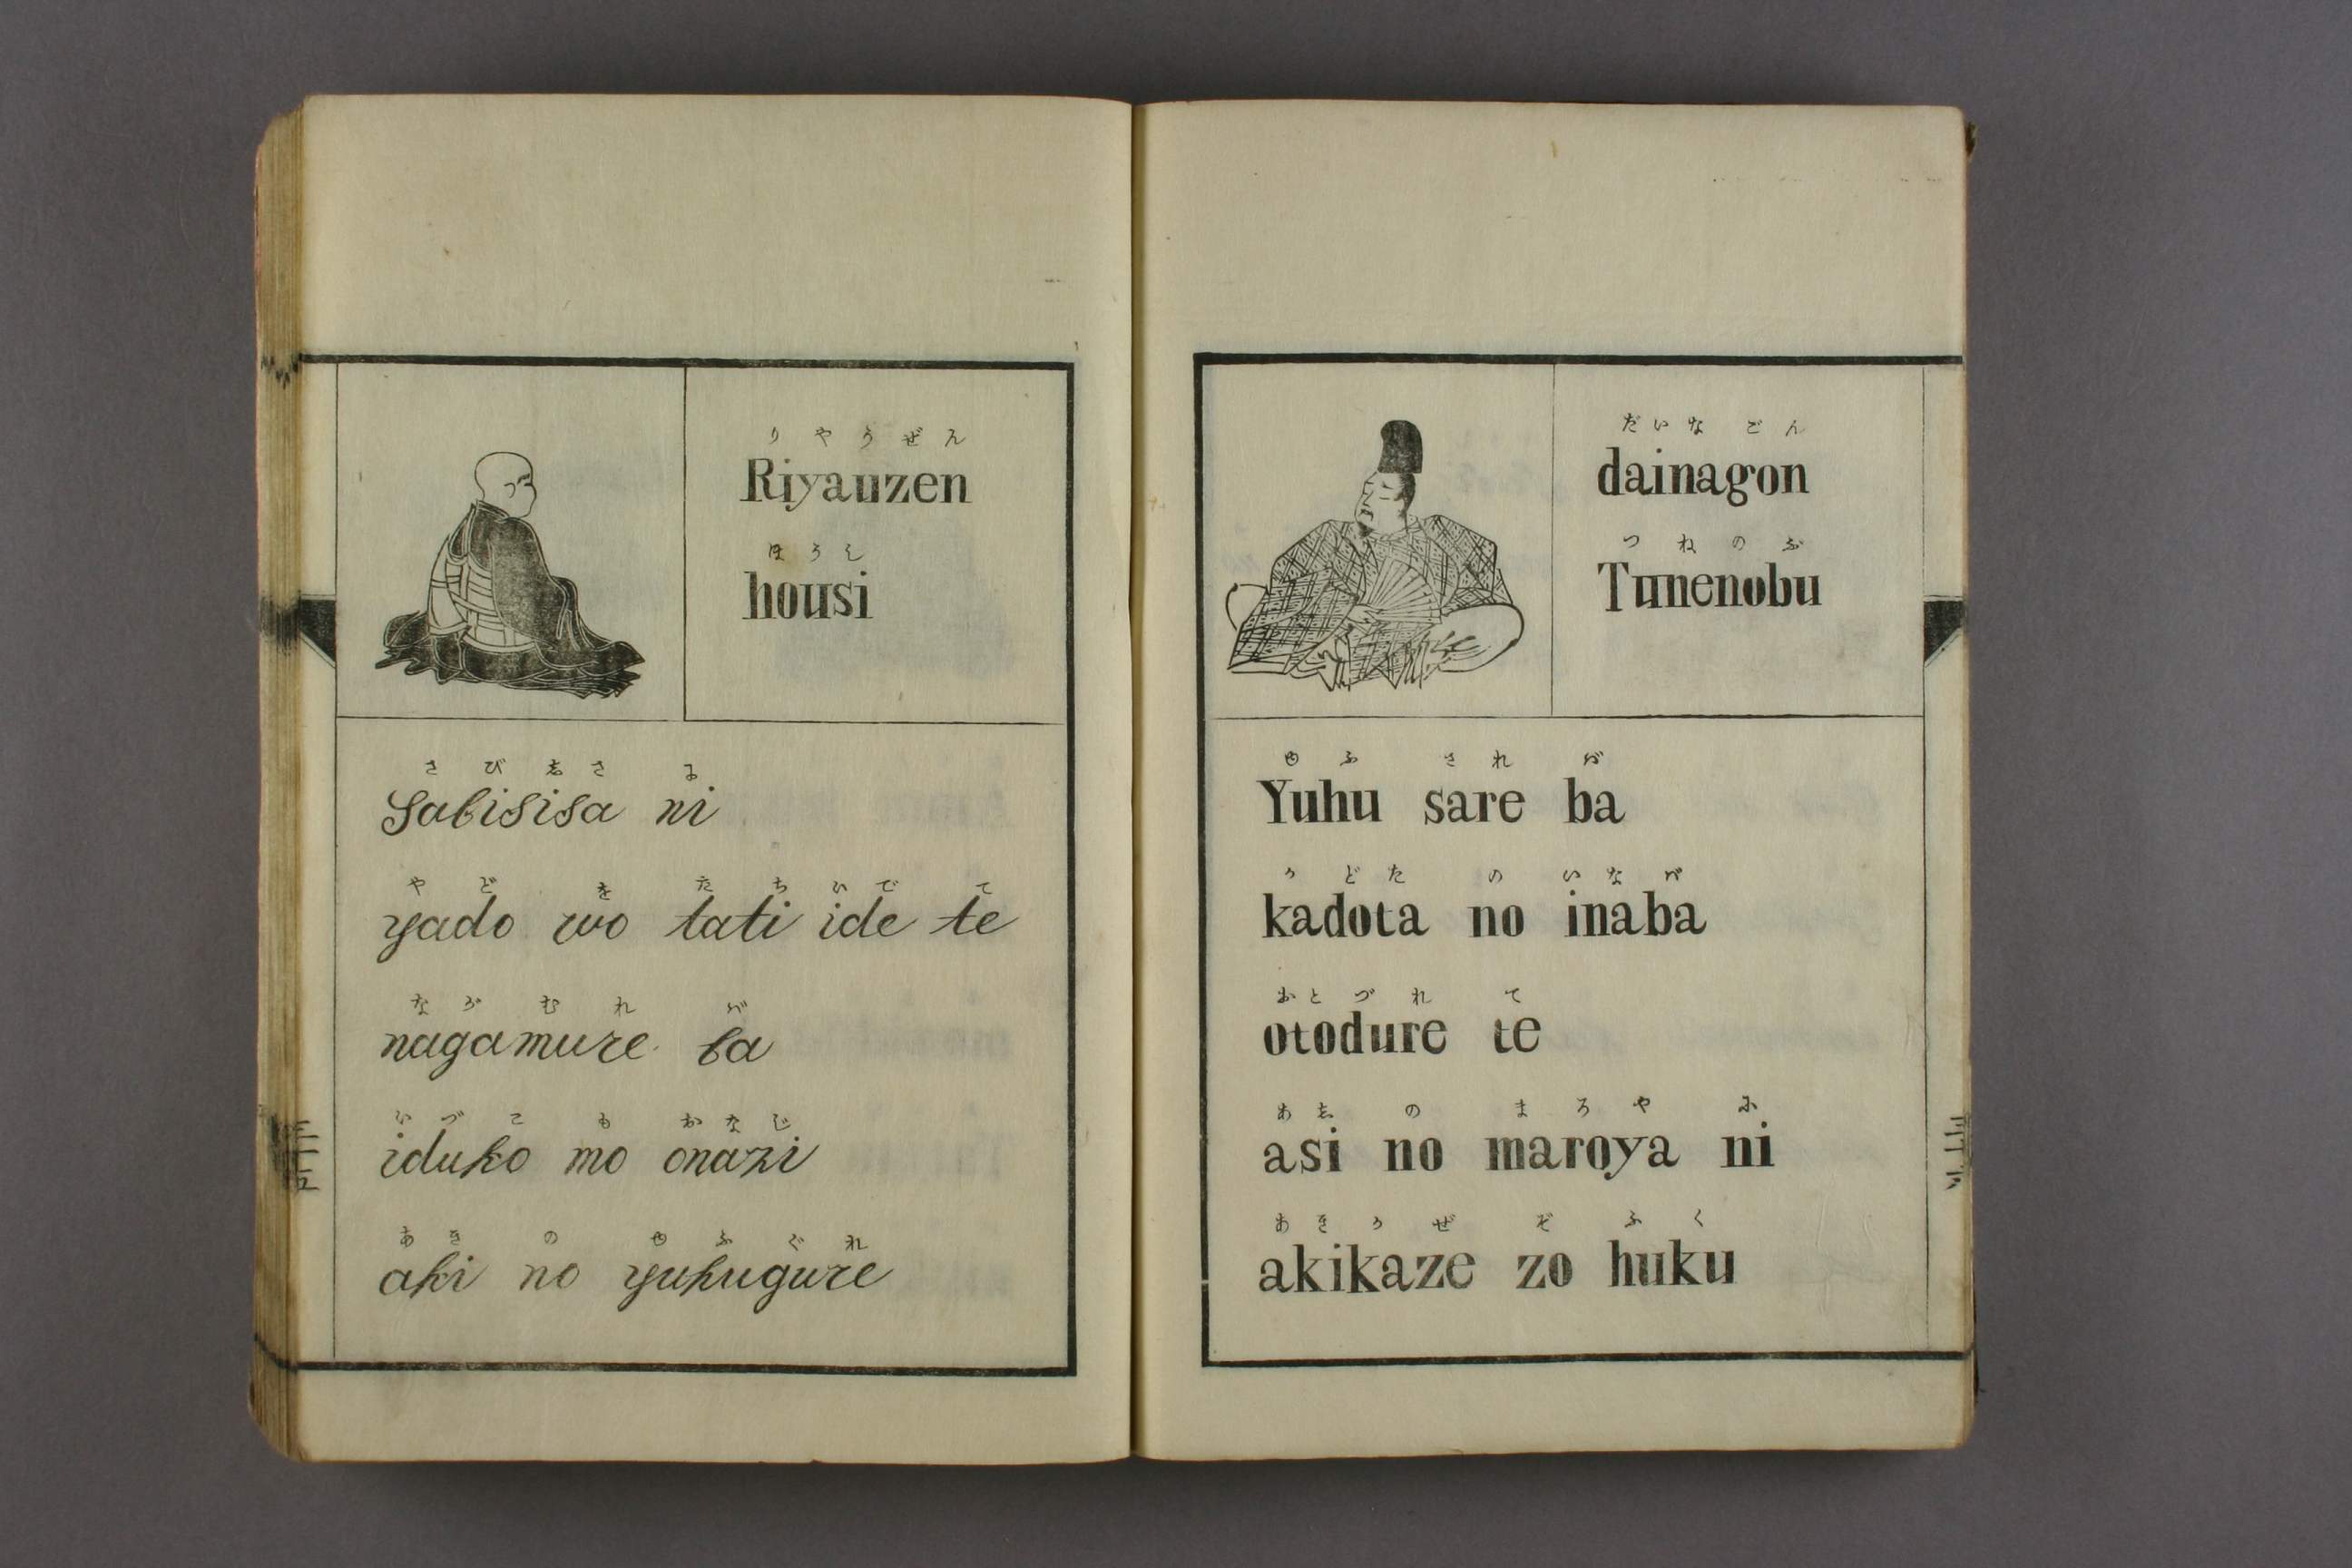 りやうぜん
Riyauzen
ほうし
housi
さびしさに
Sabisisa ni
やどをたちいでて
yado wo tati ide te
ながむれば
nagamure ba
いづこもおなじ
iduko mo onazi
あきのゆふぐれ
aki no yuhugure
だいなごん
dainagon
つねのぶ
Tunenobu
ゆふされば
Yuhu sare ba
かどたのいなば
kadota no inaba
おとづれて
otodure te
あしのまろやに
asi no maroya ni
あきかぜぞふく
akikaze zo huku